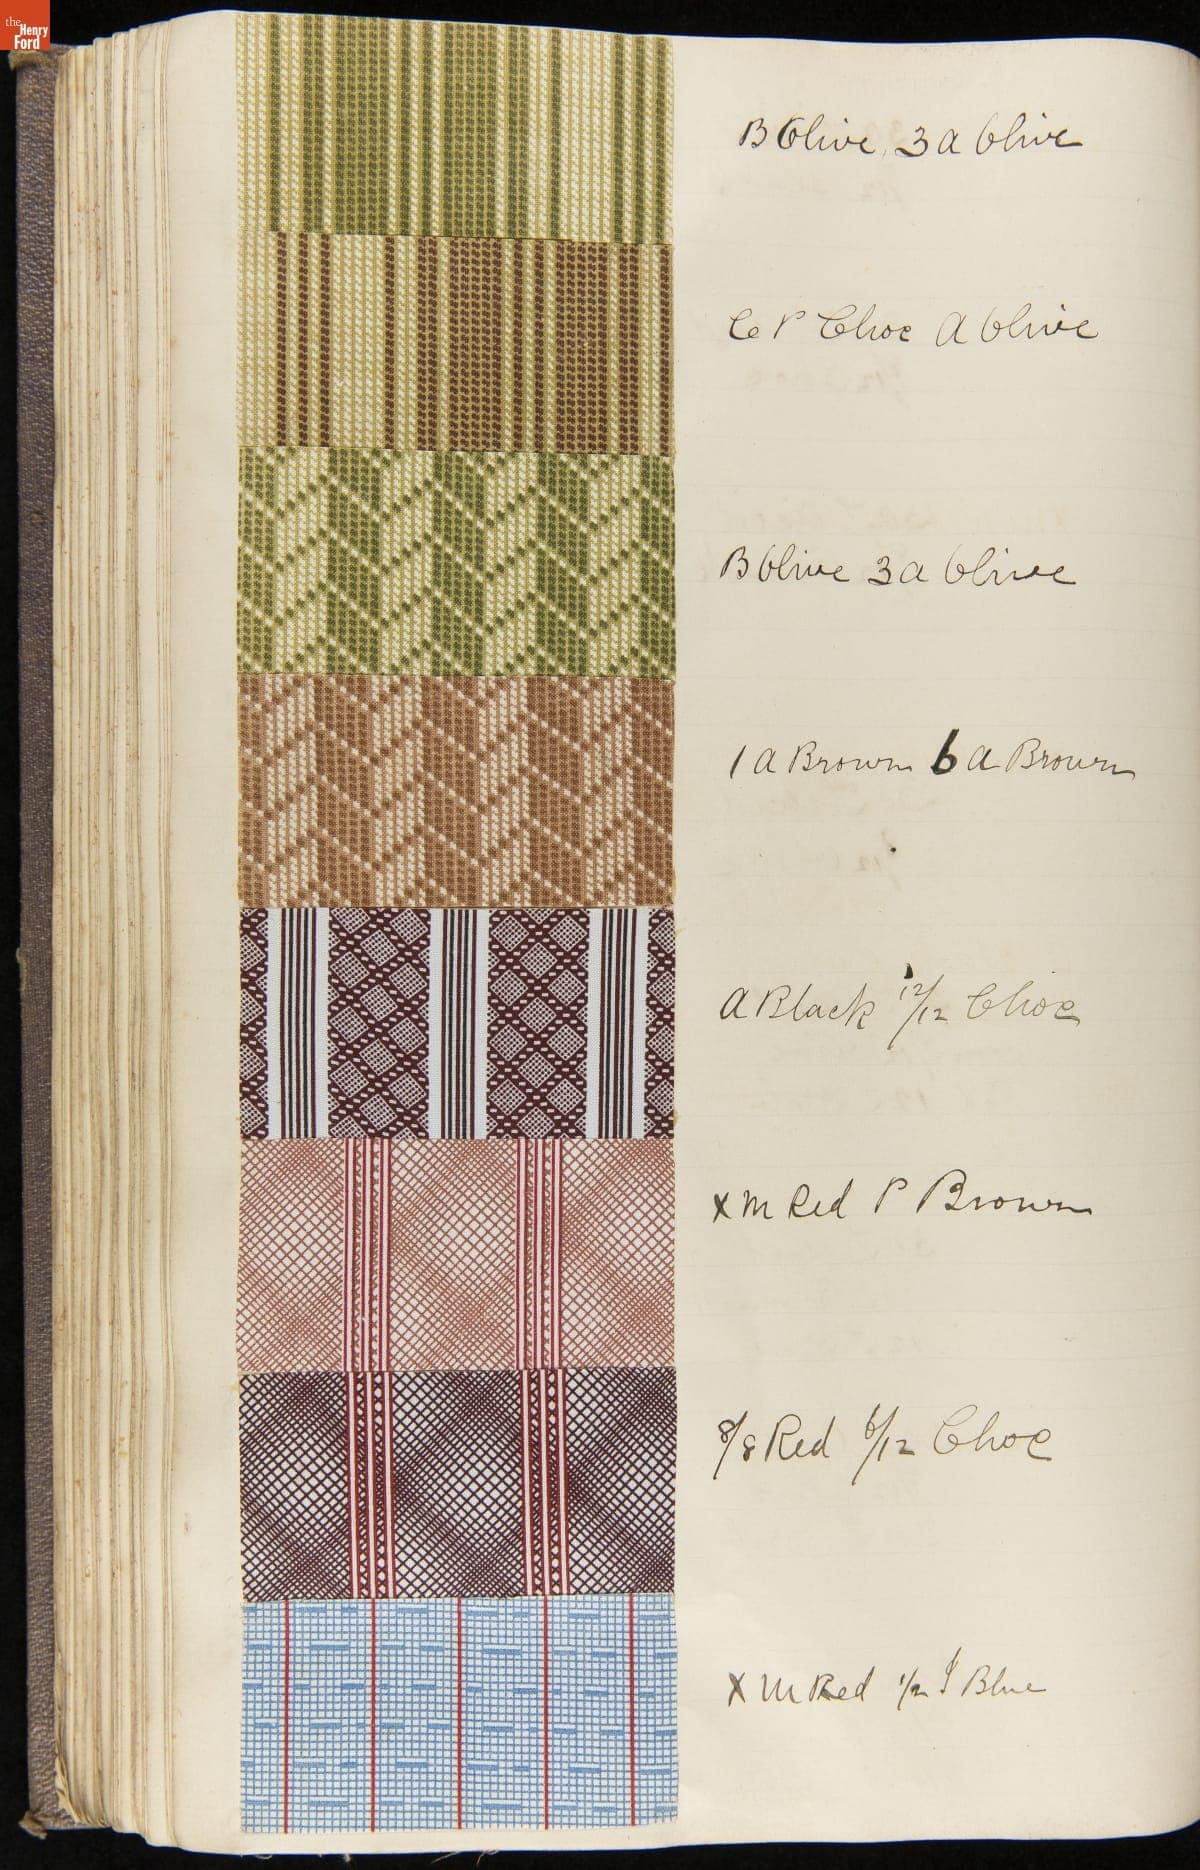 the Henry Ford
B Olive, 3 a Olive
Co P Choc A Olive
B Olive 3 a Olive
1 a Brown 6 a Brown
A Black 12/12 Choc
X m Red P Brown
8/8 Red 6/12 Choc
X m Red 1/2 I Blue